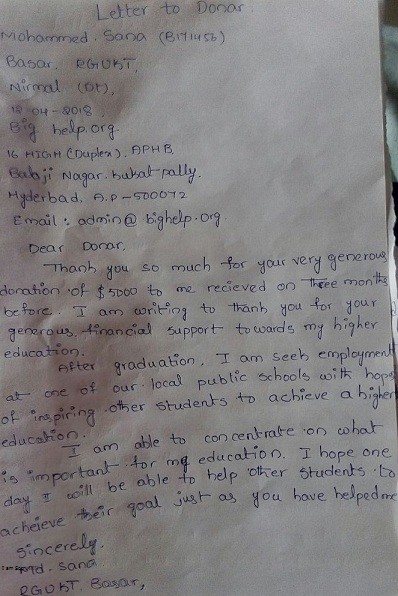 Letter to Donar.
Mohammed. Sana (B171456)
Basar, RGUKT,
Nirmal (Dt),
12-04-2018.
Big help.org.
16 HIGH (Duplex), APHB
Babji Nagar. kukat-pally.
Hyderbad, A.P-500072
Email: admin@bighelp.org
Dear Donar.
Thank you so much for your very generous
donation of $5000 to me recieved on three months
before. I am writing to thank you for your
generous financial support towards my higher
education.
After graduation, I am seek employment
at one of our local public schools with hope
of inspiring other students to achieve a higher
education.
I am able to concentrate on what
is important for my education. I hope one
day I will be able to help other students to
acheieve their goal just as you have helped me
Sincerely.
Sana
RGUKT. Basar,